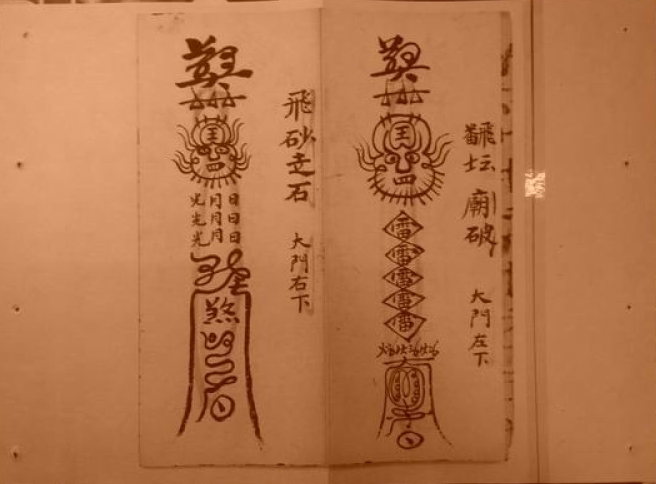 飜坛 廟破
大門左下
王
雷
雷
雷
雷
雷
飛砂走石
大門右下
王
日日日
月月月
光光光
煞